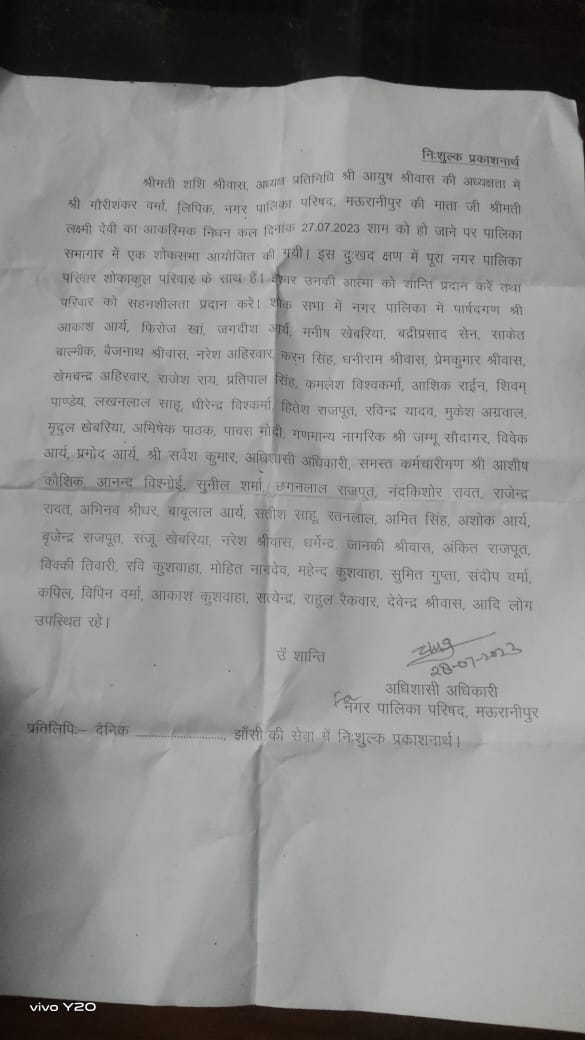 निःशुल्क प्रकाशनार्थ
श्रीमती शशि श्रीवास, अध्यक्ष प्रतिनिधि श्री आयुष श्रीवास की अध्यक्षता में
श्री गौरीशंकर वर्मा, लिपिक, नगर पालिका परिषद, मऊरानीपुर की माता जी श्रीमती
लक्ष्मी देवी का आकस्मिक निधन कल दिनांक 27.07.2023 शाम को हो जाने पर पालिका
सभागार में एक शोकसभा आयोजित की गयी। इस दुःखद क्षण में पूरा नगर पालिका
परिवार शोकाकुल परिवार के साथ है। ईश्वर उनकी आत्मा को शान्ति प्रदान करें तथा
परिवार को सहनशीलता प्रदान करें। शोक सभा में नगर पालिका में पार्षदगण श्री
आकाश आर्य, फिरोज खां, जगदीश आर्य, मनीष खेबरिया, बद्रीप्रसाद सेन, साकेत
बाल्मीक, बैजनाथ श्रीवास, नरेश अहिरवार, करन सिंह, धनीराम श्रीवास, प्रेमकुमार श्रीवास,
खेमचन्द्र अहिरवार, राजेश राय, प्रतिपाल सिंह, कमलेश विश्वकर्मा, आशिक राईन, शिवम्
पाण्डेय, लखनलाल साहू, धीरेन्द्र विश्कर्मा, हितेश राजपूत, रविन्द्र यादव, मुकेश अग्रवाल,
मृदुल खेबरिया, अभिषेक पाठक, पावस मोदी, गणमान्य नागरिक श्री जम्मू सौदागर, विवेक
आर्य, प्रमोद आर्य, श्री सर्वेश कुमार, अधिशासी अधिकारी, समस्त कर्मचारीगण श्री आशीष
कौशिक, आनन्द विश्नोई, सुनील शर्मा, छगनलाल राजपूत, नंदकिशोर रावत, राजेन्द्र
रावत, अभिनव श्रीधर, बाबूलाल आर्य, सतीश साहू, रतनलाल, अमित सिंह, अशोक आर्य,
बृजेन्द्र राजपूत, संजू खेबरिया, नरेश श्रीवास, धर्मेन्द्र, जानकी श्रीवास, अंकित राजपूत,
विक्की तिवारी, रवि कुशवाहा, मोहित नागदेव, महेन्द कुशवाहा, सुमित गुप्ता, संदीप वर्मा,
कपिल, विपिन वर्मा, आकाश कुशवाहा, सत्येन्द्र, राहुल रैकवार, देवेन्द्र श्रीवास, आदि लोग
उपस्थित रहे।
उँ शान्ति
28-07-2023
अधिशासी अधिकारी
नगर पालिका परिषद, मऊरानीपुर
प्रतिलिपिः– दैनिक ........................, झाँसी की सेवा में निःशुल्क प्रकाशनार्थ।
vivo Y20